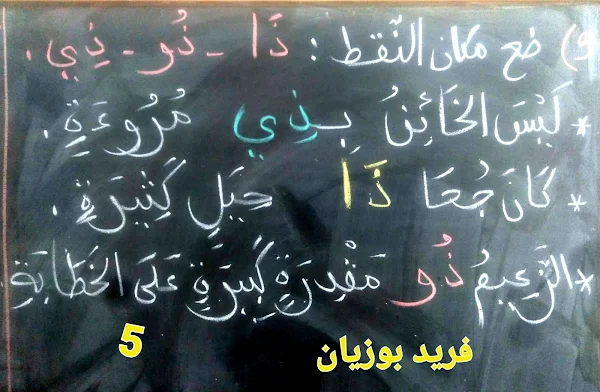 و) ضع مكان النّقط : ذَا - ذُو - ذِي .
* لَيْسَ الخَائِنُ بِذِي مُرُوءَةٍ .
* كَانَ جُحَا ذَا حِيَلٍ كَثِيرَةٍ .
* الزَّعِيمُ ذُو مَقْدِرَةٍ كَبِيرَةٍ عَلَى الخَطَابَةِ
فريد بوزيان 5